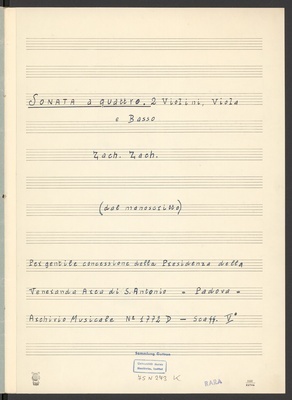 SONATA a quattro, 2 Violini, Viola
e Basso
Zach. Zach.
(dal manoscritto)
Per gentile concessione della Presidenza della
Veneranda Arca di S. Antonio = Padova =
Archivio Musicale No 1772 D — Scaff. Vo
BARA